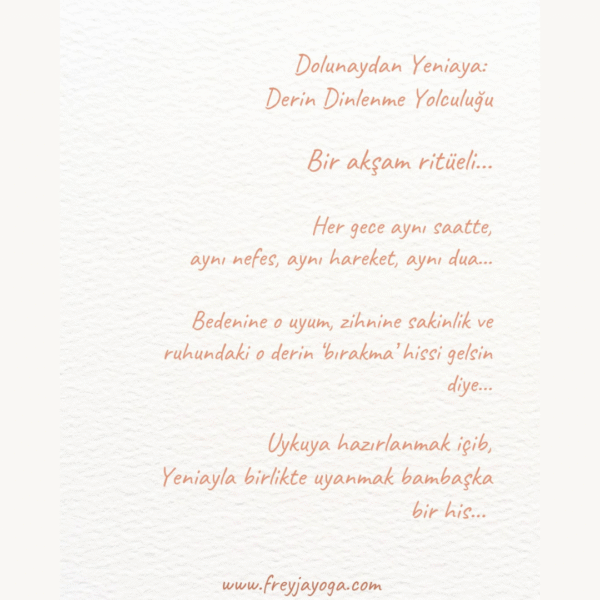 Dolunaydan Yeniaya:
Derin Dinlenme Yolculuğu
Bir akşam ritüeli...
Her gece aynı saatte,
aynı nefes, aynı hareket, aynı dua...
Bedenine o uyum, zihnine sakinlik ve
ruhundaki o derin ‘bırakma’ hissi gelsin
diye...
Uykuya hazırlanmak içib,
Yeniayla birlikte uyanmak bambaşka
bir his...
www.freyjayoga.com